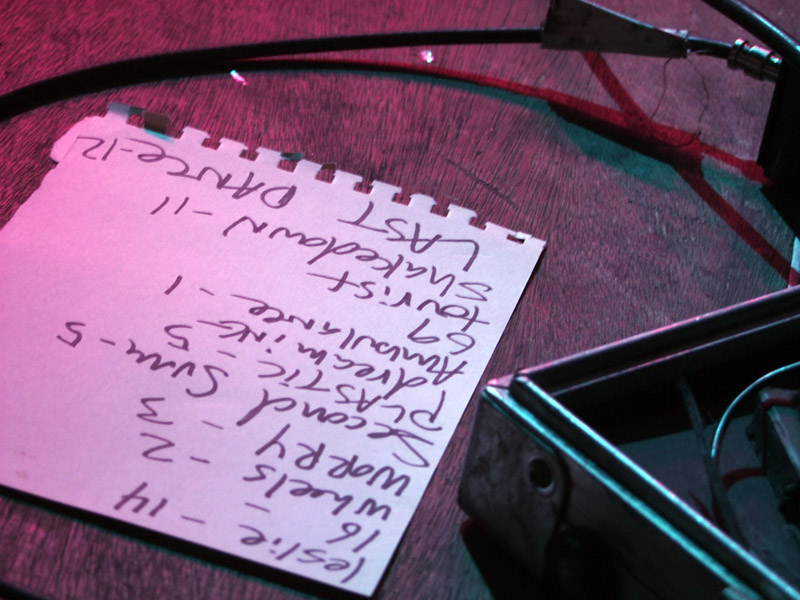 leslie - 14
16 -
wheels - 2
WORRY - 3
Second Sum - 5
PLASTIC - 5
dreaming -
Ambulance - 1
69
tourist
Shakedown - 11
LAST DANCE - 12